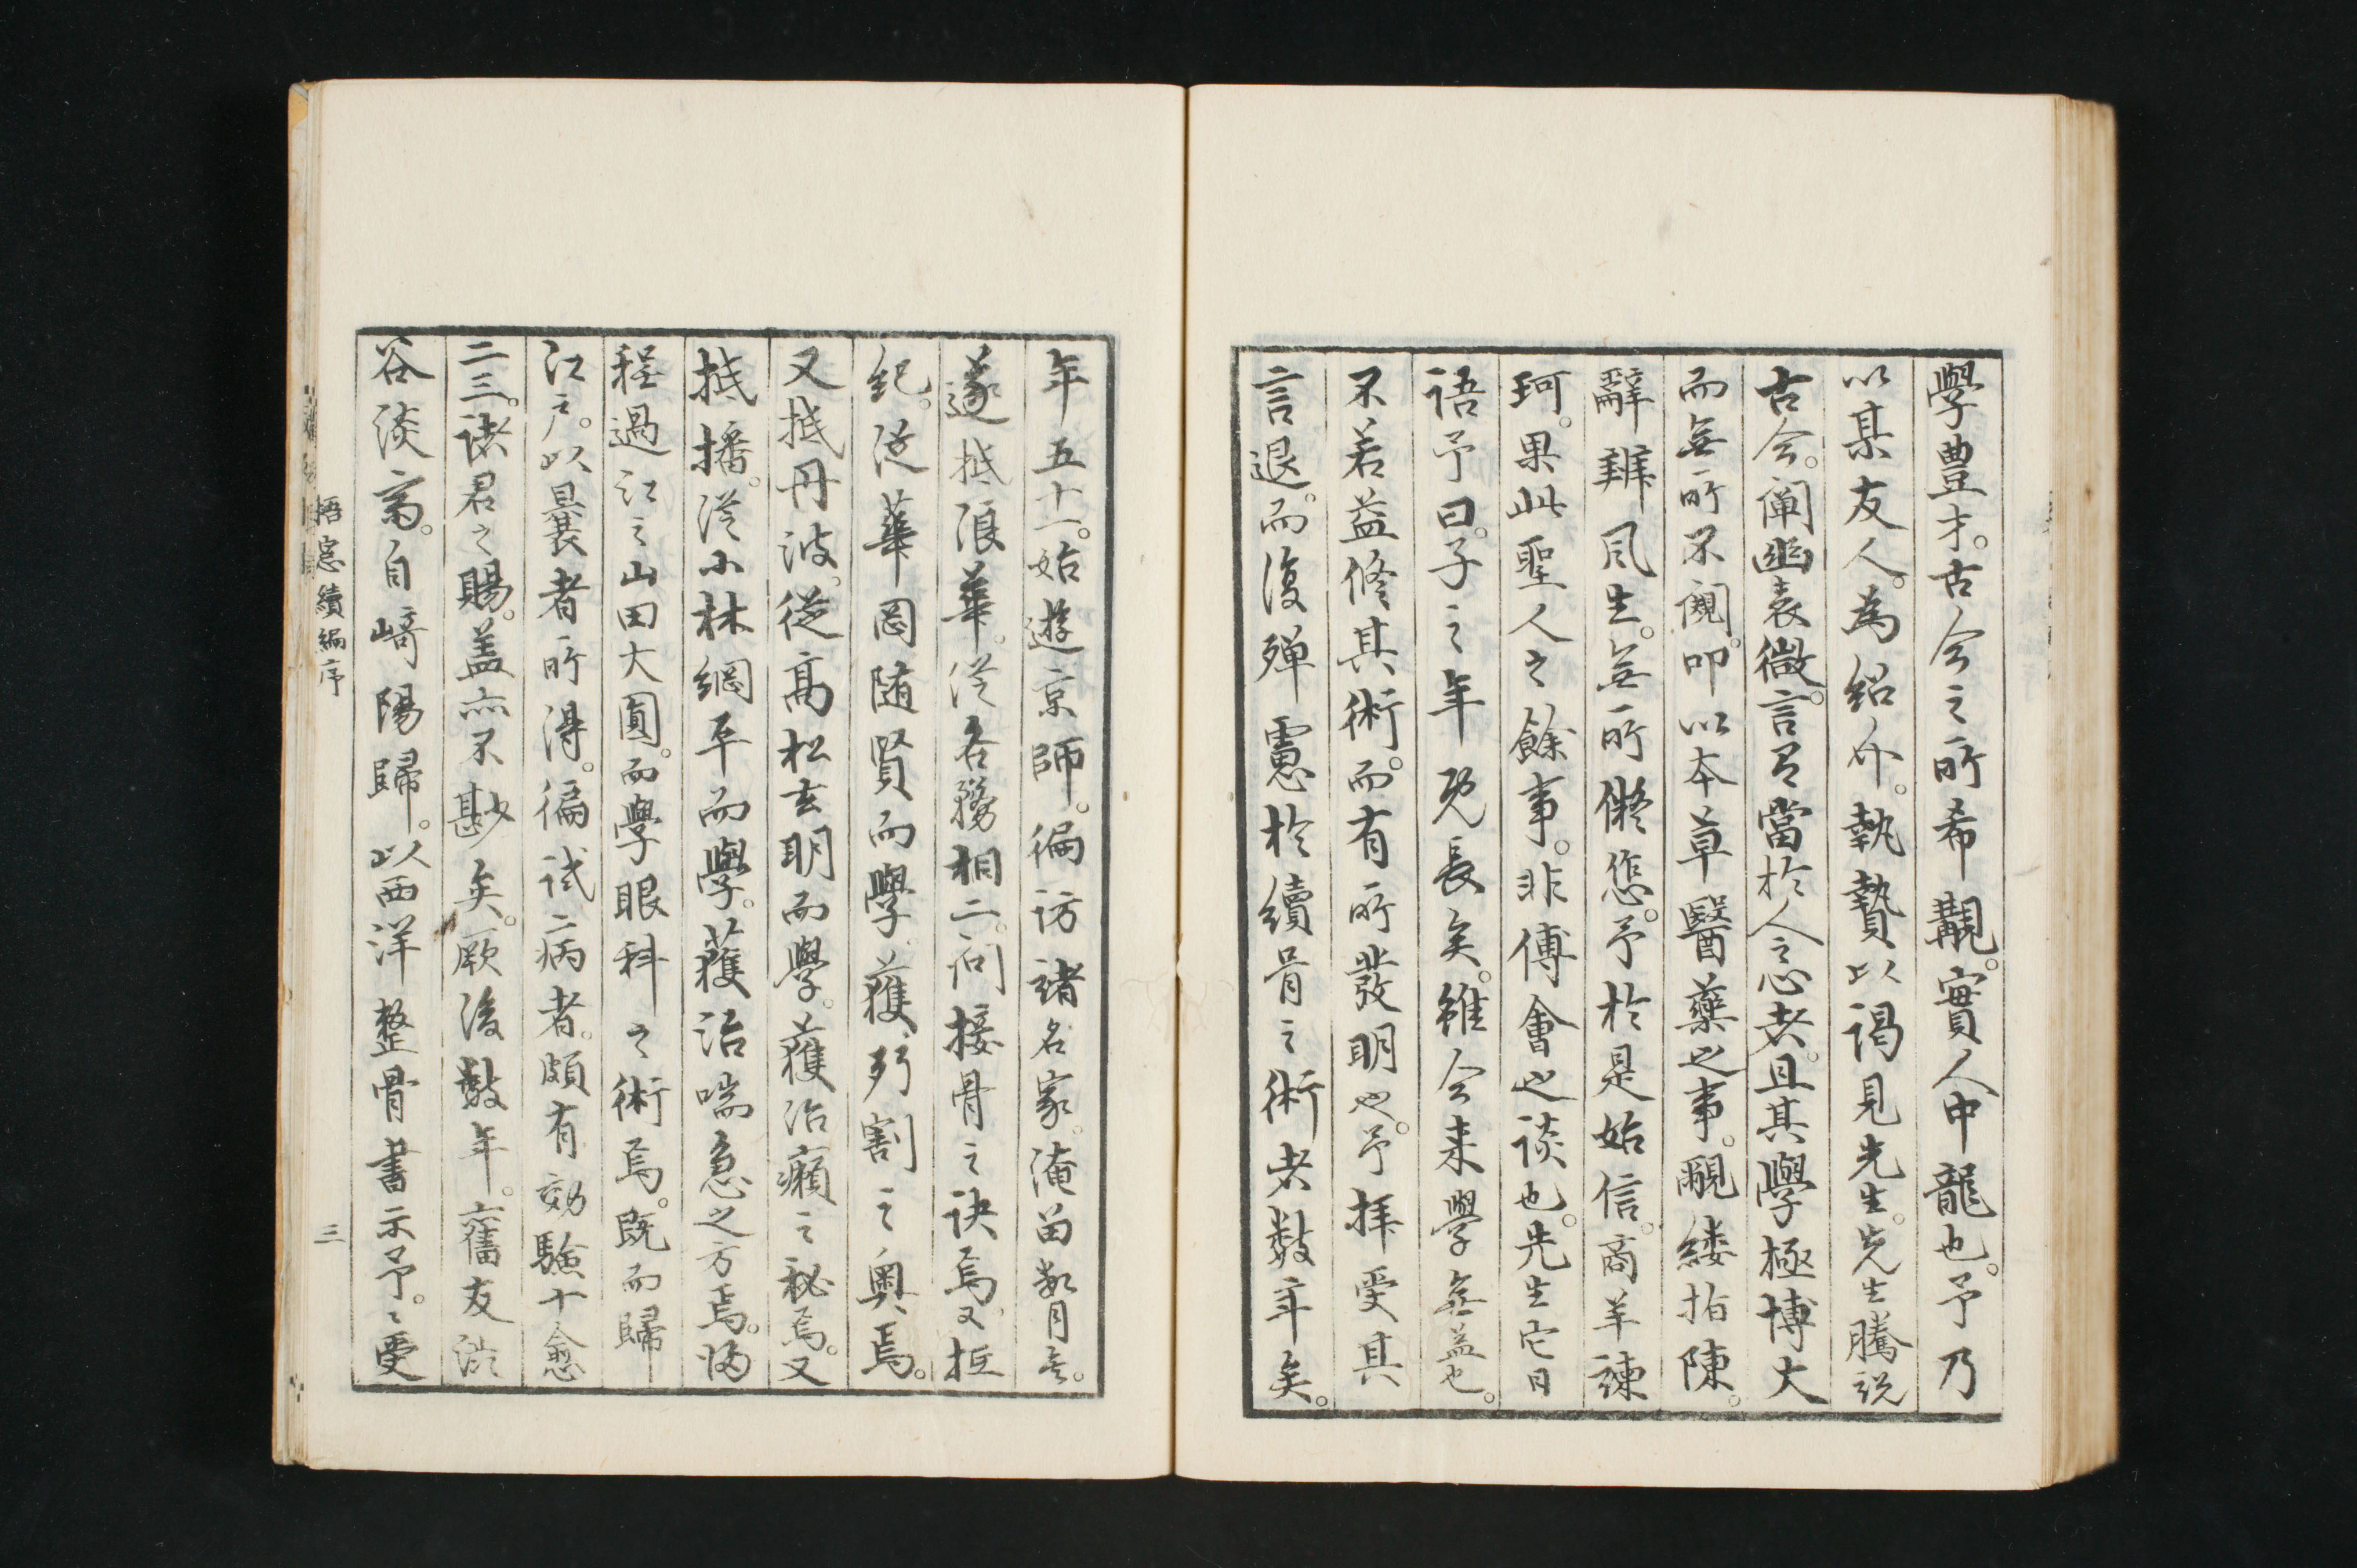 學豊才。古今之所希覯。實人中龍也。予乃
以某友人。為紹介。執贄以謁見先生。先生騰説
古今。闡幽表微。言皆當於人之心者。且其學極博大
而無所不闚。叩以本草醫藥之事。覼縷指陳。
辭辨風生。無所儗怎。予於是始信。商羊諫
珂。果此聖人之餘事。非傅會之談也。先生它日
語予曰。子之年既長矣。雖今来學無益也。
不若益修其術。而有所發明也。予拜受其
言退。而復殫慮於續骨之術者數年矣。
年五十一。始遊京師。徧訪諸名家。淹留數月矣。
遂抵浪華。従各務相二。問接骨之訣焉。又抵
紀。従華岡随賢而學。獲刳割之奥焉。
又抵丹波。従髙松玄明而學。獲治癩之秘焉。又
抵播。従小林綱平而學。獲治喘急之方焉。帰
程過江之山田大圓。而學眼科之術焉。既而歸
江戸。以曩者所得。徧試二病者。頗有効験十愈
二三。諸君之賜。盖亦不尠矣。厥後數年。舊友渋
谷淡斎。自﨑陽歸。以西洋整骨書示予。〻受
捂窓續編序
三